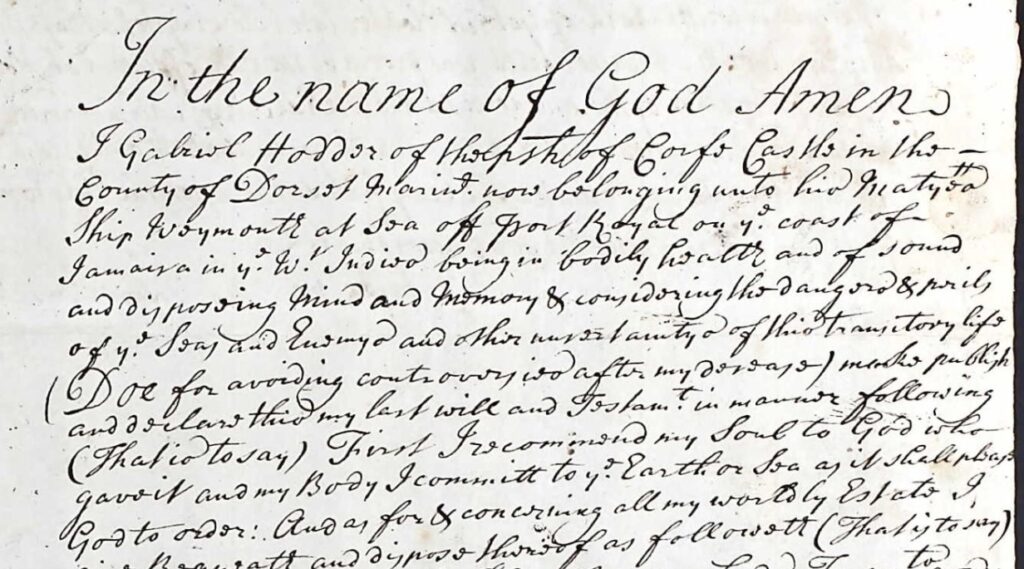 In the name of God Amen
I Gabriel Hodder of the psh of Corfe Castle in the –
County of Dorset Marinr. now belonging unto his Matyes
Ship Weymouth at Sea off Port Royal on ye. coast of
Jamaica in ye. Wt. Indies being in bodily health and of sound
and disposeing Mind and Memory & considering the dangers & perils
of ye. Seas and Enemys and other uncertaintys of this transitory life
(Doe for avoiding controversies after my decease) make publish
and declare this my last will and Testamt. in manner following
(That is to say) First I recommend my Soul to God who
gave it and my Body I committ to ye. Earth or Sea as it shall please
God to order: And as for & concerning all my worldly Estate I
give Bequeath and dispose thereof as followeth (That is to say)
to